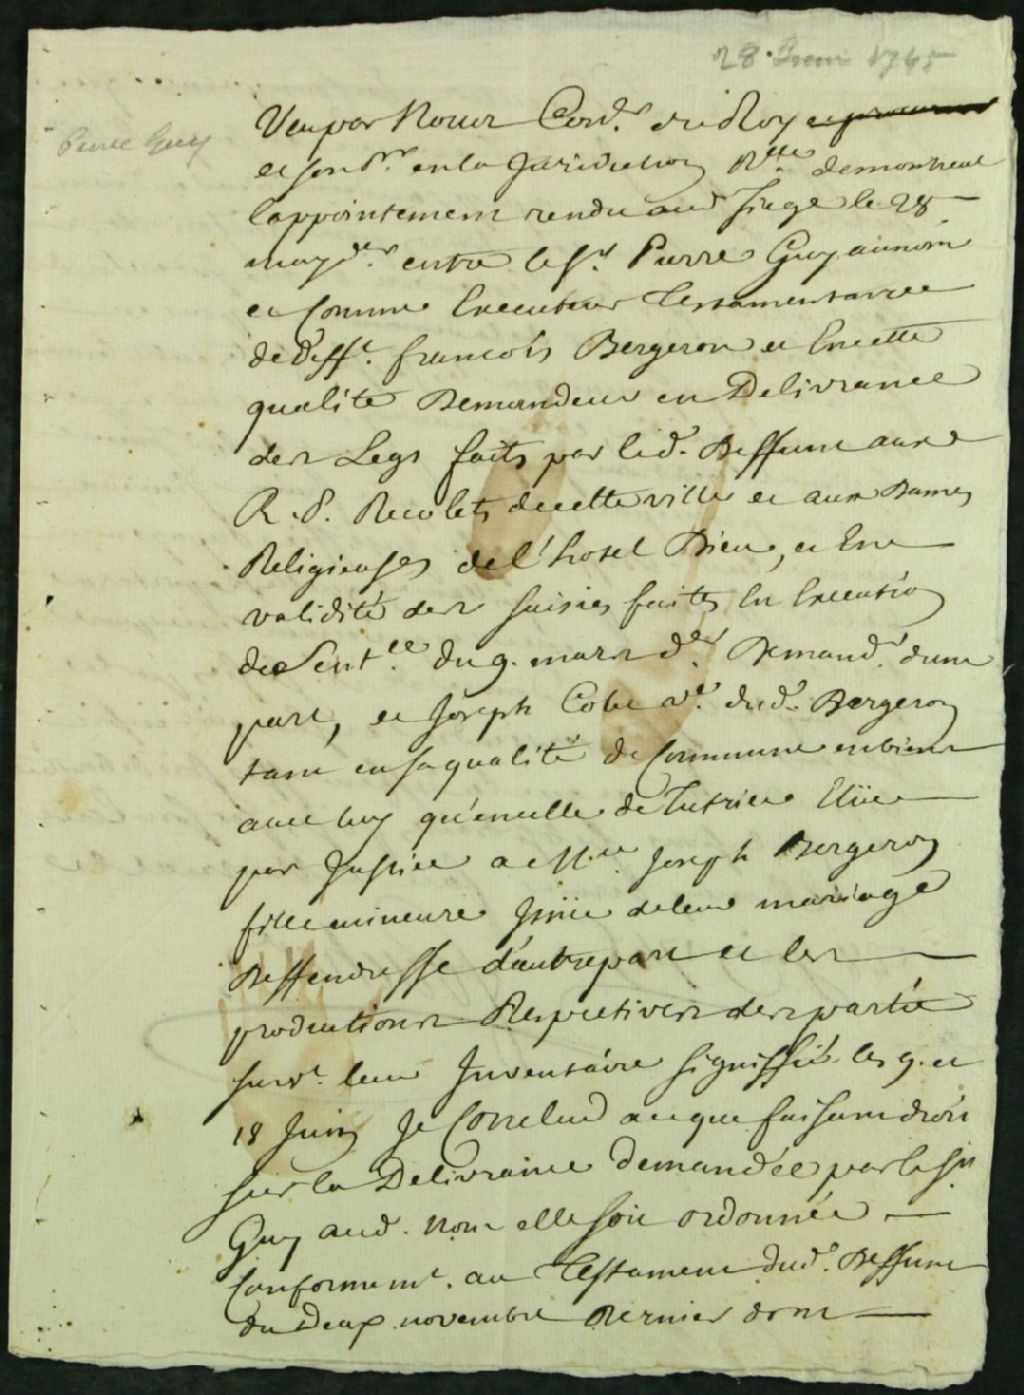 28 Juin 1745
Pierre Guy
Veu par Nous Cons.r du Roy
et son P.r en la Juridiction R.lle de montreal
l'appointement rendu aud siege le 28
may d.er entre le S.r Pierre Guy au nom
et comme Executeur Testamentaire
de deff.t francois Bergeron et En cette
qualité Demandeur en Delivrance
des Legs faits par led. Deffunt aux
R. P. Recolets de cette ville et aux Dames
Religieuses de l'hotel Dieu, et En
validité des saisies faites En Execution
de Sent.ce du 9. mars d.er Demand.r d'une
part, et Joseph v.e dud. Bergeron
tant en sa qualité de Commune en biens
avec luy qu'en celle de Tutrice Elüe
par Justice a M.ie Joseph Bergeron
fille mineure Issüe de leur mariage
Deffendresse d'autre part et les
productions Respectives des partie
suiv.t leur Inventaire signiffié les 9. et
18 Juin Je Conclud a ce que faisant droit
sur la Delivrance demandée par le Sr.
Guy aud. Nom elle soit ordonnée
Conformem.t au Testament dud. Deffunt
du Deux novembre Dernier dont